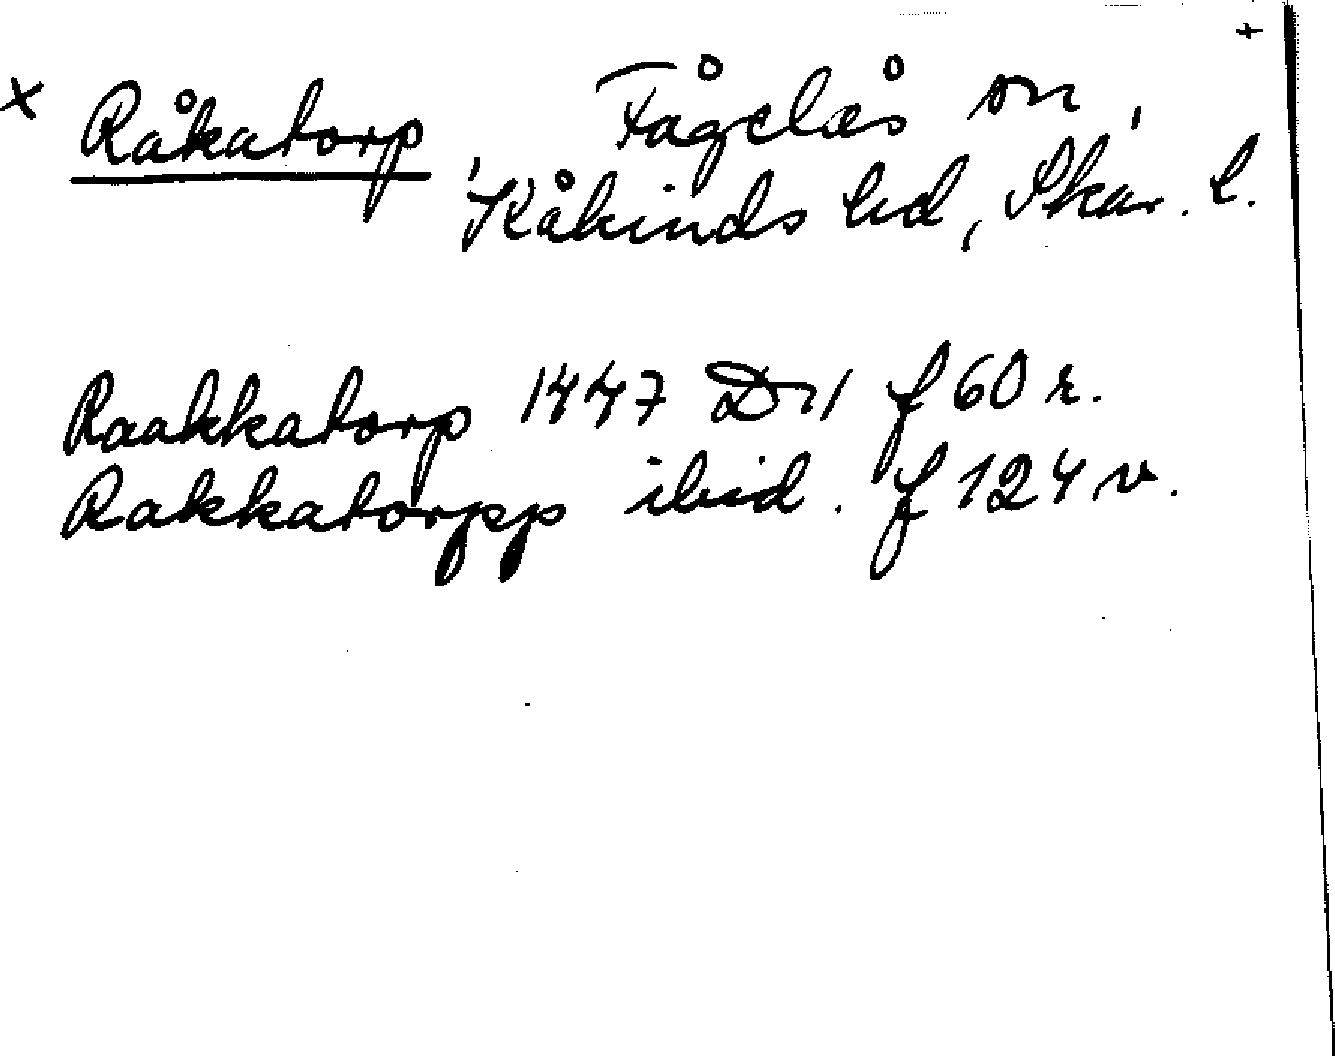 +
x Råkatorp, Fågelås sn,
Kåkinds hd, Skar. l.
Raakkatorp 1447 D11 f 60 r.
Rakkatorpp ibid. f 124 v.